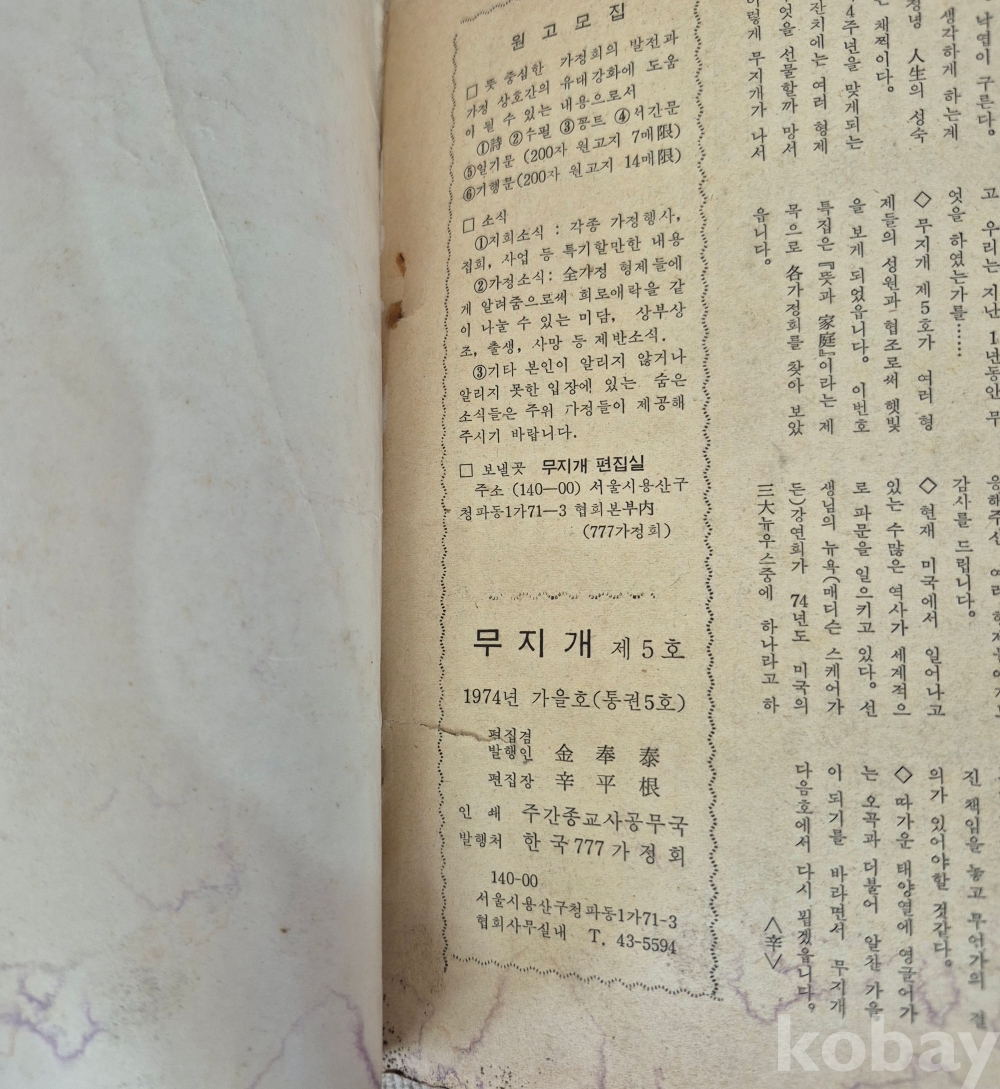 원고모집
□ 뜻 중심한 가정회의 발전과
가정 상호간의 유대강화에 도움
이 될 수 있는 내용으로서
①詩 ②수필 ③꽁트 ④서간문
⑤일기문 (200자 원고지 7매限)
⑥기행문(200자 원고지 14매限)
□ 소식
①지회소식 : 각종 가정행사,
집회, 사업 등 특기할만한 내용
②가정소식: 全가정 형제들에
게 알려줌으로써 희로애락을 같
이 나눌 수 있는 미담, 상부상
조, 출생, 사망 등 제반소식.
③기타 본인이 알리지 않거나
알리지 못한 입장에 있는 숨은
소식들은 주위 가정들이 제공해
주시기 바랍니다.
□ 보낼곳 무지개 편집실
주소 (140—00) 서울시용산구
청파동1가71—3 협회본부內
(777가정회)
무지개 제5호
1974년 가을호(통권5호)
편집겸
발행인 金奉泰
편집장 辛平根
인쇄 주간종교사공무국
발행처 한국777가정회
140-00
서울시용산구청파동1가71-3
협회사무실내 T. 43-5594
낙엽이 구른다.
생각하게 하는계
人生의 성숙
채찍이다.
4주년을 맞게되는
잔치에는 여러 형제
엇을 선물할까 망서
이렇게 무지개가 나서
고 우리는 지난 1년동안 무
엇을 하였는가를……
◇무지개 제5호가 여러 형
제들의 성원과 협조로써 햇빛
을 보게 되었읍니다. 이번호
특집은 『뜻과 家庭』이라는 제
목으로 各가정회를 찾아 보았
읍니다.
감사를 드립니다.
◇현재 미국에서 일어나고
있는 수많은 역사가 세계적으
로 파문을 일으키고 있다. 선
생님의 뉴욕(매디슨 스케어가
든)강연회가 74년도 미국의
三大뉴우스중에 하나라고 하
진 책임을 놓고 무언가의 결
의가 있어야할 것같다.
◇따가운 태양열에 영글어가
는 오곡과 더불어 알찬 가을
이 되기를 바라면서 무지개
다음호에서 다시 뵙겠읍니다.
<辛>
kobay